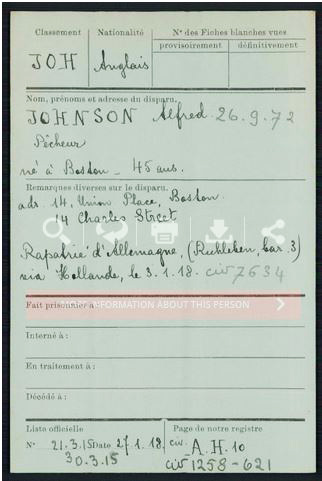 Classement
Nationalité
Nos des Fiches blanches vues
provisoirement
définitivement
JOH
Anglais
Nom, prénoms et adresse du disparu.
JOHNSON Alfred 26.9.72
Pêcheur
né à Boston - 45 ans.
Remarques diverses sur le disparu.
adr. 14, Union Place, Boston
14 Charles Street
Rapatrié d'Allemagne, (Ruhleben, bar. 3)
via Hollande, le 3.1.18. civ 7634
Fait prisonnier à :
INFORMATION ABOUT THIS PERSON
Interné à :
En traitement à :
Décédé à :
Liste officielle
Page de notre registre
No 21.3.15 Date 27.1.18. civ. A.H. 10
30.3.15 civ 1258-621